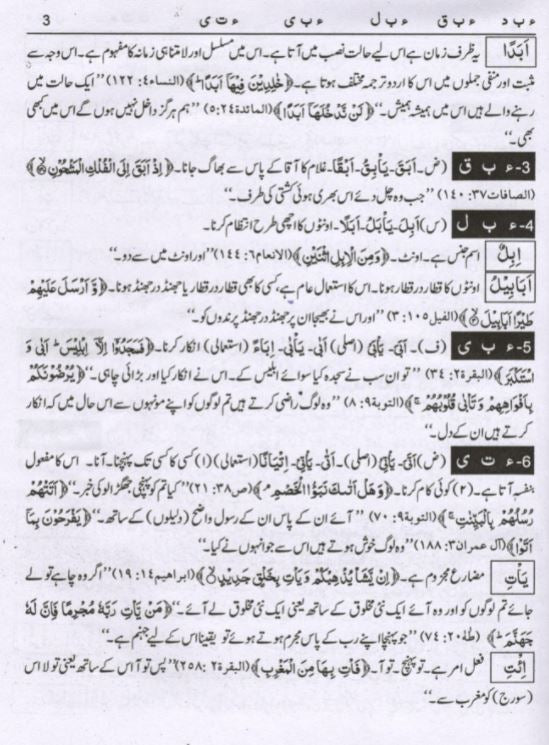 ء ب د   ء ب ق   ء ب ل   ء ب ی   ء ت ی   3
اَبَدًا یہ ظرف زمان ہے اس لیے حالت نصب میں آتا ہے۔ اس میں مسلسل اور لامتناہی زمانہ کا مفہوم ہے۔ اس وجہ سے
مثبت اور منفی جملوں میں اس کا اردو ترجمہ مختلف ہوتا ہے۔ ﴿خٰلِدِيْنَ فِيْهَا اَبَدًا ؕ﴾ (النساء۴: ۱۲۲) ”ایک حالت میں
رہنے والے ہیں اس میں ہمیشہ ہمیش۔“ ﴿لَنْ نَّدْخُلَهَا اَبَدًا﴾ (المائدہ۵:۲۴) ”ہم ہرگز داخل نہیں ہوں گے اس میں کبھی
بھی۔“
3- ء ب ق (ض) اَبَقَ۔ يَأْبِقُ۔ اَبْقًا۔ غلام کا آقا کے پاس سے بھاگ جانا۔ ﴿اِذْ اَبَقَ اِلَى الْفُلْكِ الْمَشْحُوْنِ ۙ﴾
(الصافات۳۷: ۱۴۰) ”جب وہ چل دئے اس بھری ہوئی کشتی کی طرف۔“
4- ء ب ل (س) اَبِلَ۔ يَأْبَلُ۔ اَبَلًا۔ اونٹوں کا اچھی طرح انتظام کرنا۔
اِبِلٌ اسم جنس ہے۔ اونٹ۔ ﴿وَمِنَ الْاِبِلِ اثْنَيْنِ﴾ (الانعام۶: ۱۴۴) ”اور اونٹ میں سے دو۔“
اَبَابِيْلُ اونٹوں کا قطار در قطار ہونا۔ اس کا استعمال عام ہے، کسی کا بھی قطار در قطار یا جھنڈ در جھنڈ ہونا۔ ﴿وَّ اَرْسَلَ عَلَيْهِمْ
طَيْرًا اَبَابِيْلَ ۙ﴾ (الفیل۱۰۵: ۳) ”اور اس نے بھیجا ان پر جھنڈ در جھنڈ پرندوں کو۔“
5- ء ب ی (ف)۔ اَبَیَ۔ يَأْبَیُ (اصلی) اَبٰی۔ يَأْبٰی۔ اِبَاءً (استعمالی) انکار کرنا۔ ﴿فَسَجَدُوْۤا اِلَّاۤ اِبْلِيْسَ ؕ اَبٰى وَ
اسْتَكْبَرَ﴾ (البقرۃ۲: ۳۴) ”تو ان سب نے سجدہ کیا سوائے ابلیس کے۔ اس نے انکار کیا اور بڑائی چاہی۔“ ﴿يُرْضُوْنَكُمْ
بِاَفْوَاهِهِمْ وَتَاْبٰى قُلُوْبُهُمْ ۚ﴾ (التوبۃ۹: ۸) ”وہ لوگ راضی کرتے ہیں تم لوگوں کو اپنے مونہوں سے اس حال میں کہ انکار
کرتے ہیں ان کے دل۔“
6- ء ت ی (ض) اَتَیَ۔ يَأْتِیُ (اصلی)۔ اَتٰی۔ يَأْتِیْ۔ اِتْيَانًا (استعمالی) (۱) کسی کا کسی تک پہنچنا۔ آنا۔ اس کا مفعول
بنفسہ آتا ہے۔ (۲) کوئی کام کرنا۔ ﴿وَ هَلْ اَتٰىكَ نَبَؤُا الْخَصْمِ ۘ﴾ (ص۳۸: ۲۱) ”کیا تم کو پہنچی جھگڑالو کی خبر۔“ ﴿اَتَتْهُمْ
رُسُلُهُمْ بِالْبَيِّنٰتِ ۚ﴾ (التوبۃ۹: ۷۰) ”آئے ان کے پاس ان کے رسول واضح (دلیلوں) کے ساتھ۔“ ﴿يَفْرَحُوْنَ بِمَاۤ
اَتَوْا﴾ (آل عمران۳: ۱۸۸) ”وہ لوگ خوش ہوتے ہیں اس سے جو انہوں نے کیا۔“
يَأْتِ مضارع مجزوم ہے۔ ﴿اِنْ يَّشَاْ يُذْهِبْكُمْ وَيَاْتِ بِخَلْقٍ جَدِيْدٍ ۙ﴾ (ابراہیم۱۴: ۱۹) ”اگر وہ چاہے تو لے
جائے تم لوگوں کو اور وہ آئے ایک نئی مخلوق کے ساتھ یعنی ایک نئی مخلوق لے آئے۔“ ﴿مَنْ يَّاْتِ رَبَّهٗ مُجْرِمًا فَاِنَّ لَهٗ
جَهَنَّمَ ؕ﴾ (طٰہٰ۲۰: ۷۴) ”جو پہنچا اپنے رب کے پاس مجرم ہوتے ہوئے تو یقیناً اس کے لیے جہنم ہے۔“
اِئْتِ فعل امر ہے۔ تو پہنچ۔ تو آ۔ ﴿فَاْتِ بِهَا مِنَ الْمَغْرِبِ﴾ (البقرۃ۲: ۲۵۸) ”پس تو آ اس کے ساتھ یعنی تو لا اس
(سورج) کو مغرب سے۔“